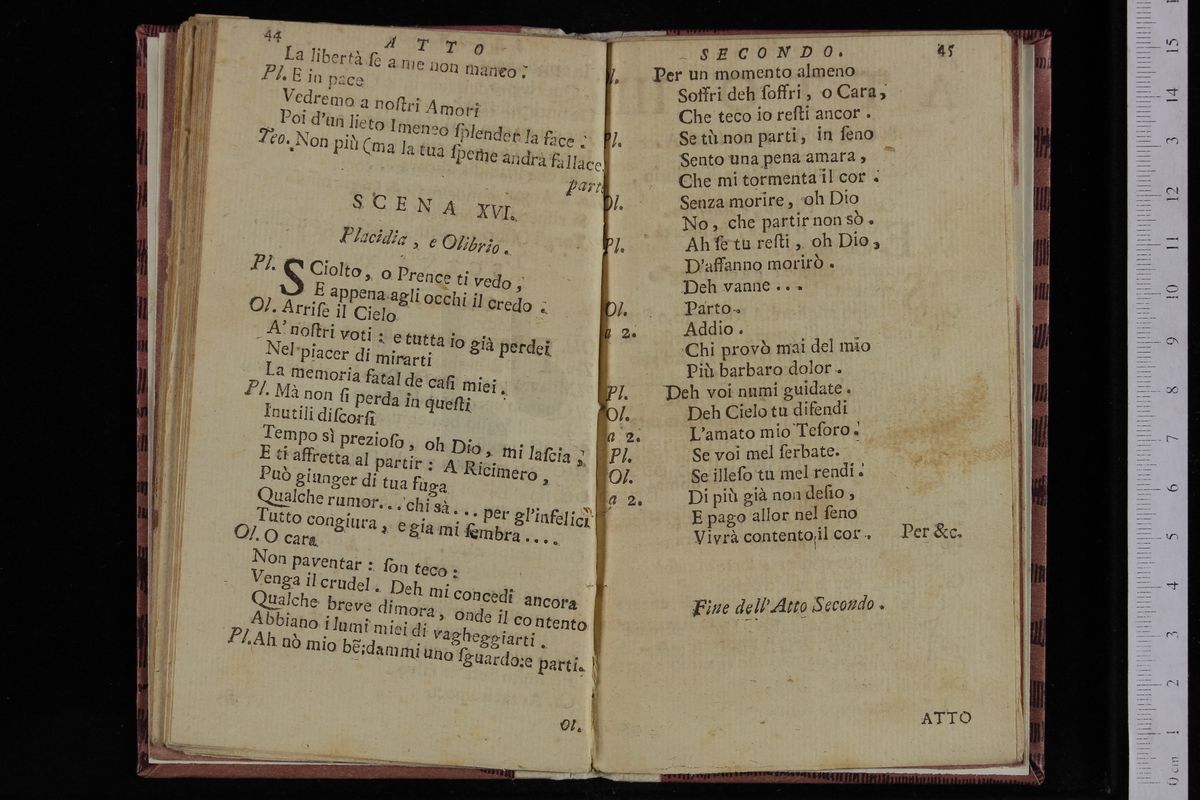 44
ATTO
La libertà ſe a me non manco.
Pl. E in pace
Vedremo a noſtri Amori
Poi d'un lieto Imeneo ſplender la face.
Teo. Non più (ma la tua ſpeme andrà fallace.
parte
SCENA XVI.
Placidia, e Olibrio.
Pl. SCiolto, o Prence ti vedo,
E appena agli occhi il credo.
Ol. Arriſe il Cielo
A' noſtri voti: e tutta io già perdei
Nel piacer di mirarti
La memoria fatal de caſi miei.
Pl. Mà non ſi perda in queſti
Inutili diſcorſi
Tempo sì prezioſo, oh Dio, mi laſcia,
E ti affretta al partir: A Ricimero,
Può giunger di tua fuga
Qualche rumor... chi sà... per gl'infelici
Tutto congiura, e gia mi ſembra....
Ol. O cara
Non paventar: ſon teco:
Venga il crudel. Deh mi concedi ancora
Qualche breve dimora, onde il contento
Abbiano i lumi miei di vagheggiarti.
Pl. Ah nò mio bẽ; dammi uno ſguardo: e parti.
Ol.
SECONDO.
45
Ol. Per un momento almeno
Soffri deh ſoffri, o Cara,
Che teco io reſti ancor.
Pl. Se tù non parti, in ſeno
Sento una pena amara,
Che mi tormenta il cor.
Ol. Senza morire, oh Dio
No, che partir non sò.
Pl. Ah ſe tu reſti, oh Dio,
D'affanno morirò.
Deh vanne...
Ol. Parto.
a 2. Addio.
Chi provò mai del mio
Più barbaro dolor.
Pl. Deh voi numi guidate.
Ol. Deh Cielo tu difendi
a 2. L'amato mio Teſoro.
Pl. Se voi mel ſerbate.
Ol. Se illeſo tu mel rendi.
a 2. Di più già non deſio,
E pago allor nel ſeno
Vivrà contento il cor. Per &c.
Fine dell'Atto Secondo.
ATTO
0 cm 1 2 3 4 5 6 7 8 9 10 11 12 13 14 15